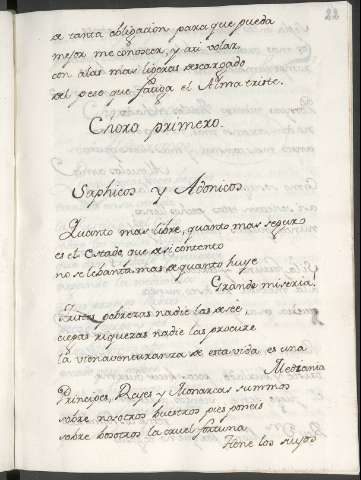 22
de tanta obligacion para que pueda
mejor me conoscer, y asi volar
con alas mas ligeras descargado
del peso que fatiga el Alma triste.
Choro primero.
Saphicos y Adonicos.
Quanto mas libre, quanto mas seguro
es el Estado, que de si contento
no se lebanta mas de quanto huye
Grande miseria.
Tristes pobrezas nadie las desee,
ciegas riquezas nadie las procure
la vienaventuranza de esta vida es una
Mediania
Principes, Reyes y Monarcas summos
sobre nosotros buestros pies poneis
sobre bosotros la cruel fortuna
tiene los suyos